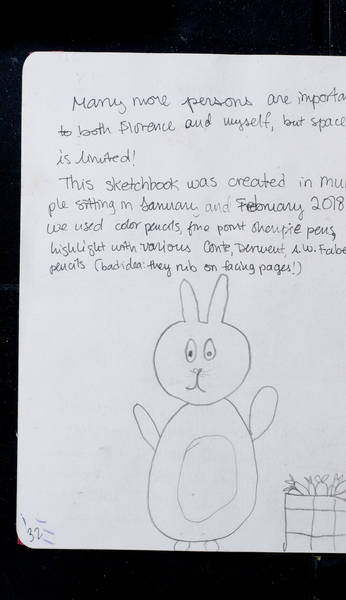 Many more persons are importa
to both Florence and myself, but space
is limited!
This sketchbook was created in mul
ple sitting in January and February 2018
we used color pencils, fine point sharpie pens,
highlight with various Conte, Derwent, A.W. Fabe
pencils (bad idea: they rub on facing pages!)
32